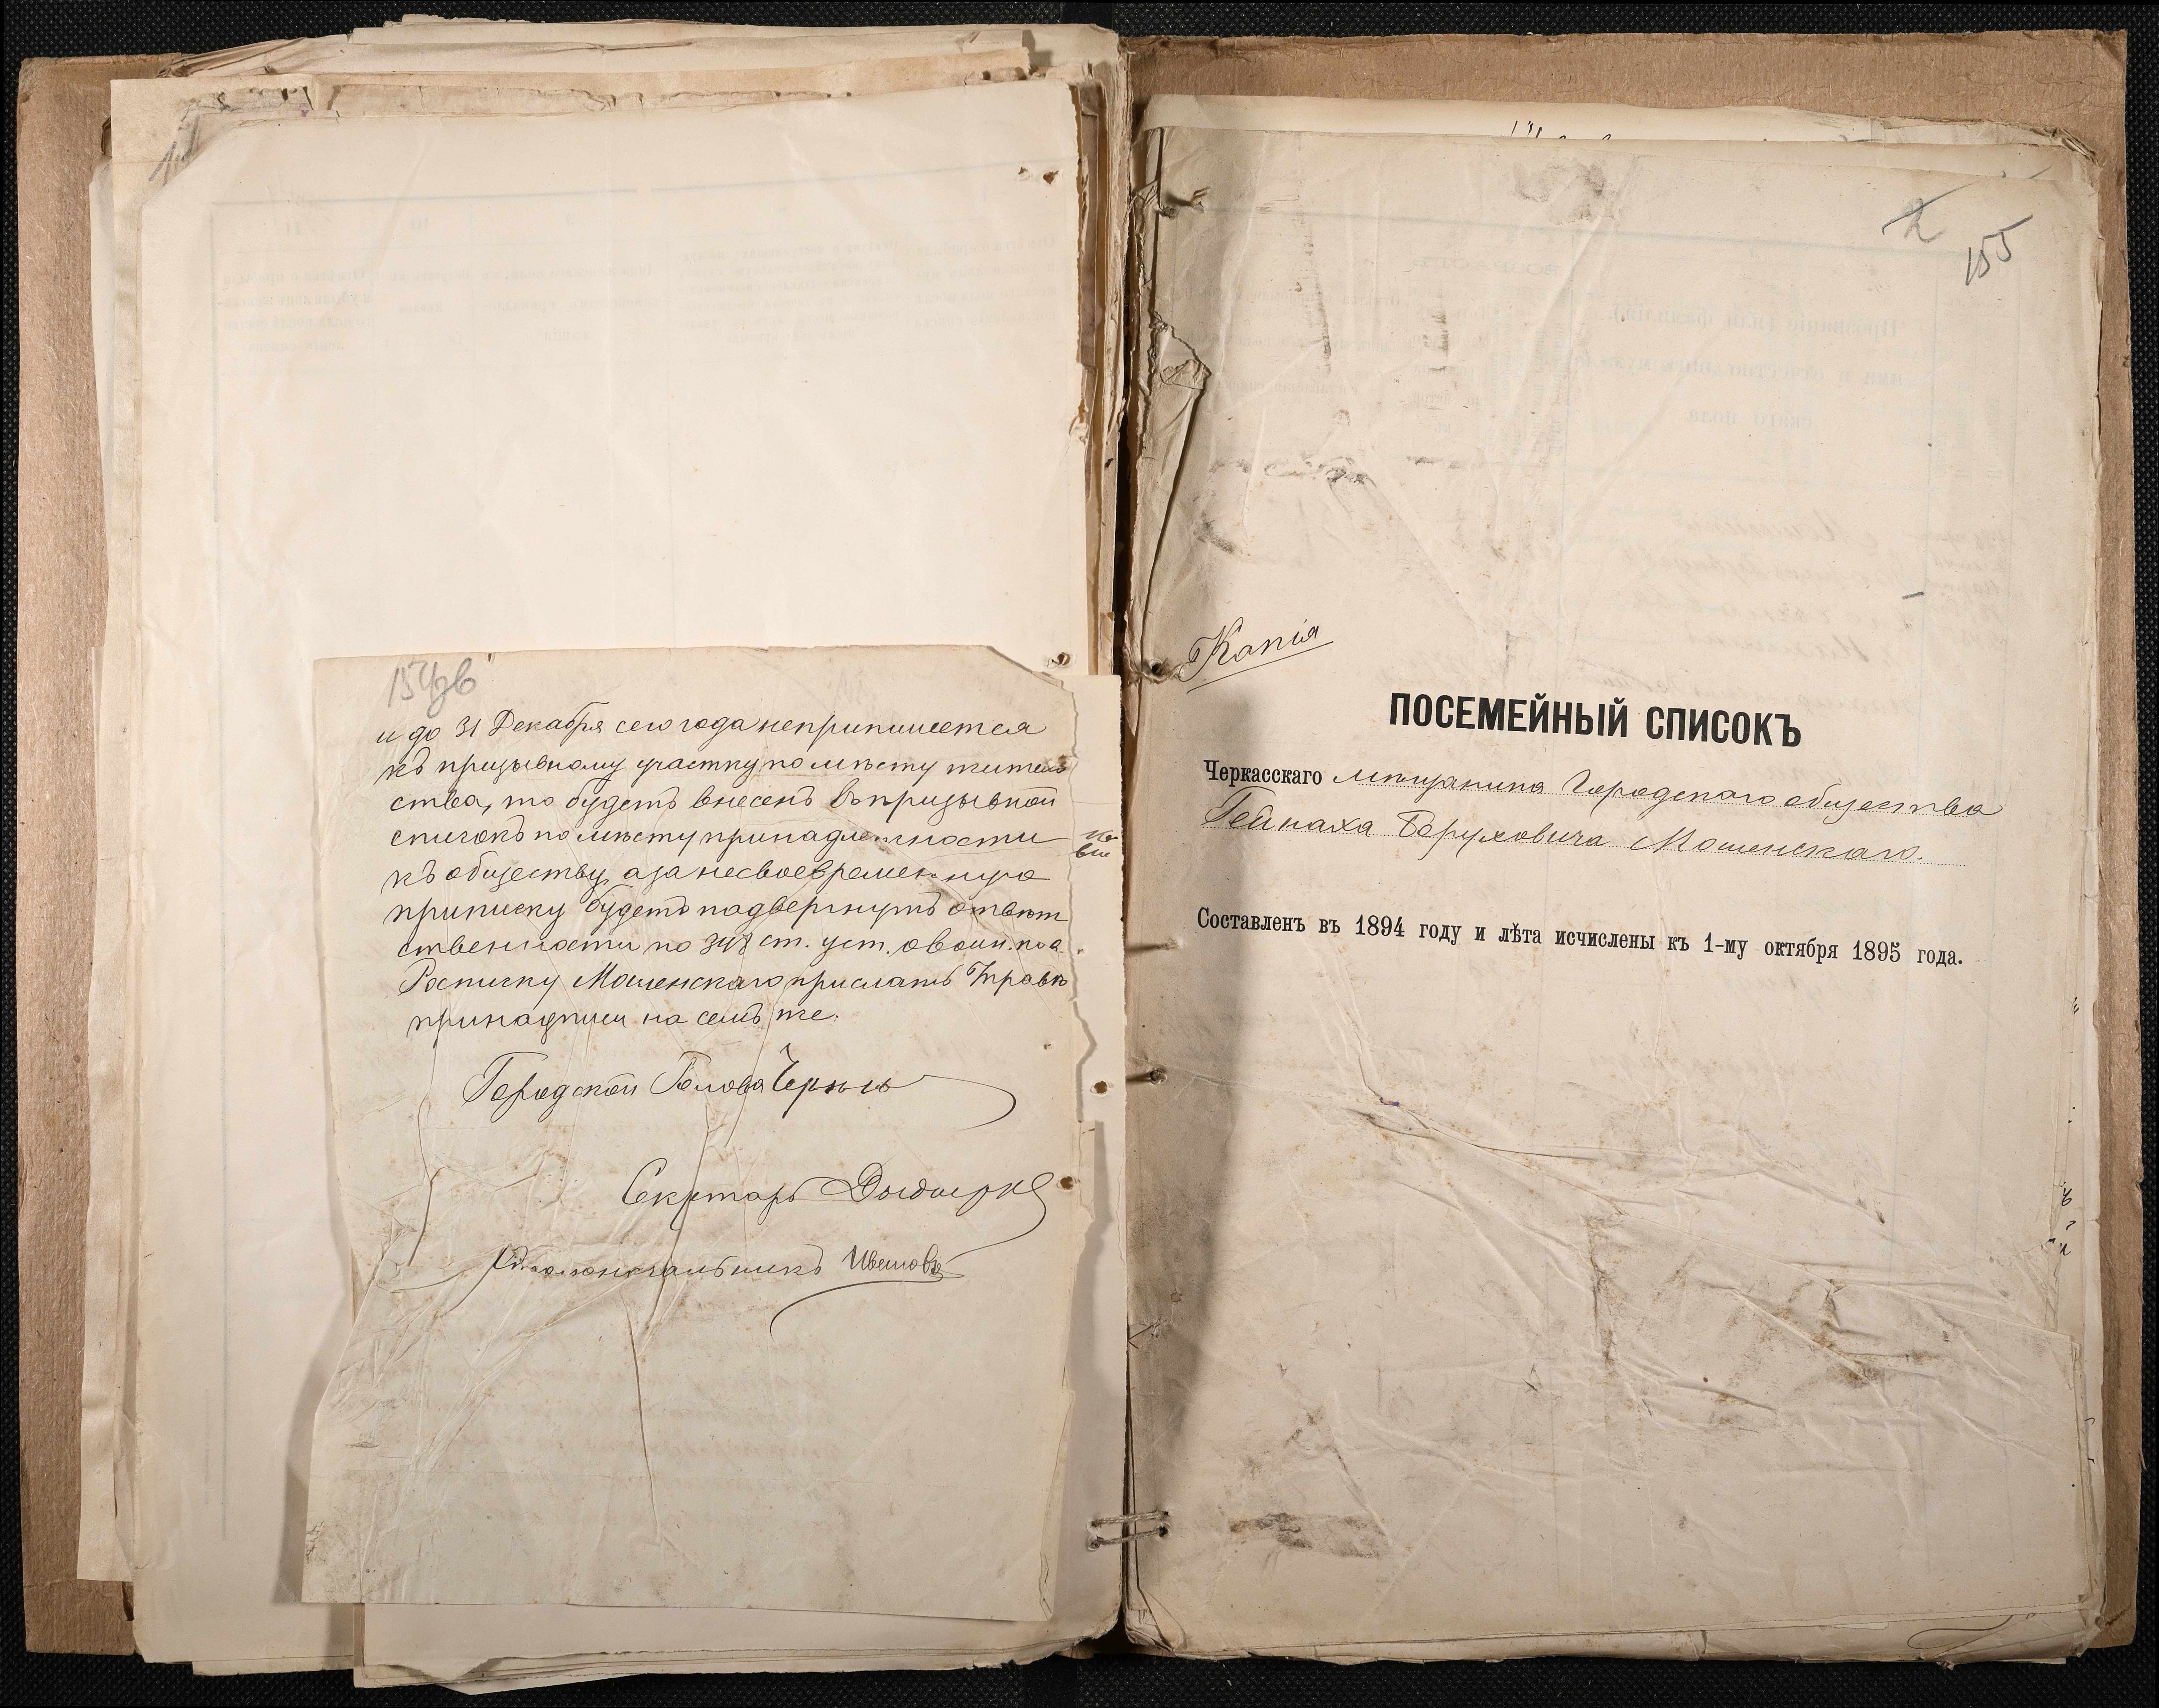 154 об
и до 31 Декабря сего года неприпишется
къ призывному участку по мѣсту житель
ства, то будетъ внесенъ въ призывной
списокъ по мѣсту принадлежности
къ обществу, а за несвоевременную
приписку будетъ подвергнутъ отвѣт
ственности по ст. уст. о воин. пов.
Росписку Мошенскаго прислать Управѣ
принадписи на семъ же.
Городской Голова
Секретарь
Столоначальникъ
155
Копія
ПОСЕМЕЙНЫЙ СПИСОКЪ
Черкасскаго мѣщанина Городскаго общества
Гейнаха Боруховича Мошенскаго.
Составленъ въ 1894 году и лѣта исчислены къ 1-му октября 1895 года.